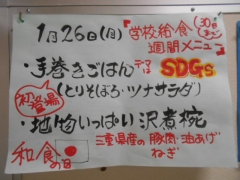 1月26日(月)『学校給食
週間メニュー』
・手巻きごはん テーマは SDGs
初登場
(とりそぼろ・ツナサラダ)
・地物いっぱい沢煮椀
和食の日
三重県産の豚肉・油あげ
ねぎ